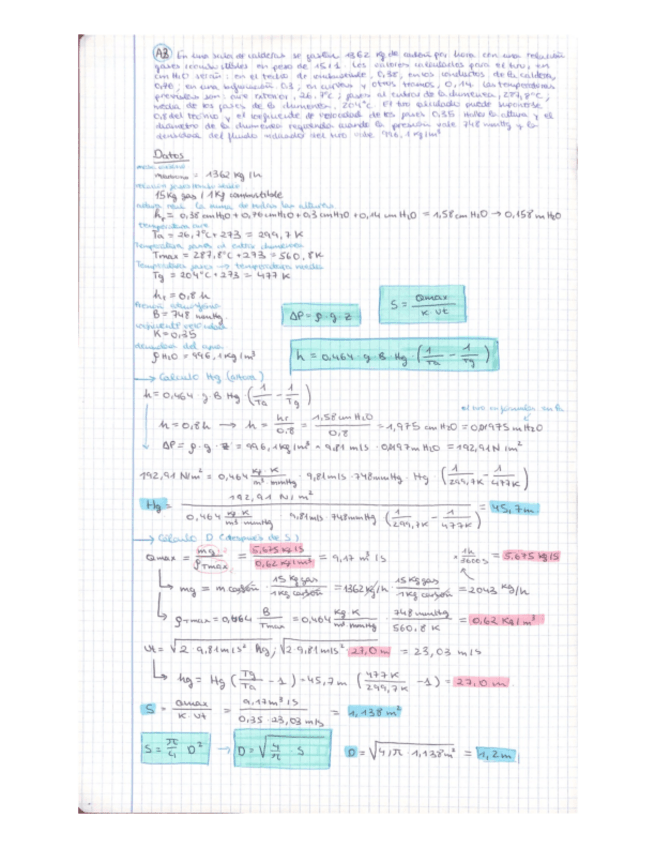 A3 En una sala de calderas se queman 1362 kg de carbón por hora con una relación
gases combustibles en peso de 15:1. Los valores calculados para el tiro, en
cm H2O serán: en el techo de combustible, 0,38; en los conductos de la caldera,
0,76; en una 0,3; en curvas y otros tramos, 0,14. Las temperaturas
previstas son: aire exterior, 26,7°C; gases al entrar de la chimenea, 287,8°C;
media de los gases de la chimenea, 204°C. El tiro calculado puede suponerse
0,8 del teórico y el coeficiente de velocidad de los gases 0,35. Hallar la altura y el
diámetro de la chimenea requerida cuando la presión vale 748 mmHg y la
densidad del fluido indicador del tiro vale 996,1 kg/m³
Datos
1362 kg/h
15 kg gas / 1 kg combustible
hr = 0,38 cmH2O + 0,76 cmH2O + 0,3 cmH2O + 0,14 cm H2O = 1,58 cm H2O → 0,158 m H2O
Ta = 26,7°C + 273 = 299,7 K
Tmax = 287,8°C + 273 = 560,8 K
Tg = 204°C + 273 = 477 K
hr = 0,8 h
B = 748 mmHg
K = 0,35
densidad del agua
ρH2O = 996,1 kg/m³
ΔP = ρ · g · z
S = Qmax / K Vt
h = 0,464 · g · B · Hg · (1/Ta − 1/Tg)
→ Cálculo Hg (altura)
h = 0,464 · g · B · Hg (1/Ta − 1/Tg)
hr = 0,8h → h = hr/0,8 = 1,58 cm H2O / 0,8 = 1,975 cm H2O = 0,01975 mH2O
ΔP = ρ · g · z = 996,1 kg/m³ · 9,81 m/s · 0,0197 m H2O = 192,91 N/m²
192,91 N/m² = 0,464 kg·K / m³ mmHg · 9,81 m/s · 748 mmHg · Hg (1/299,7K − 1/477K)
Hg = 192,91 N/m² / 0,464 kg·K / m³ mmHg · 9,81 m/s · 748 mmHg (1/299,7K − 1/477K) = 45,7 m
→ Cálculo D (después de S)
Qmax = mg / ρTmax = 5,675 kg/s / 0,62 kg/m³ = 9,17 m³/s
· 1h / 3600s = 5,675 kg/s
mg = m carbón · 15 kg gas / 1 kg carbón = 1362 kg/h · 15 kg gas / 1 kg carbón = 2043 kg/h
ρTmax = 0,464 B / Tmax = 0,464 kg·K / m³·mmHg · 748 mmHg / 560,8 K = 0,62 kg/m³
Vt = √2 · 9,81 m/s² hg; √2 · 9,81 m/s² · 27,0 m = 23,03 m/s
hg = Hg (Tg/Ta − 1) = 45,7 m (477K / 299,7K − 1) = 27,0 m
S = Qmax / K Vt = 9,17 m³/s / 0,35 · 23,03 m/s = 1,138 m²
S = π/4 D² → D = √4/π S D = √4/π · 1,138 m² = 1,2 m